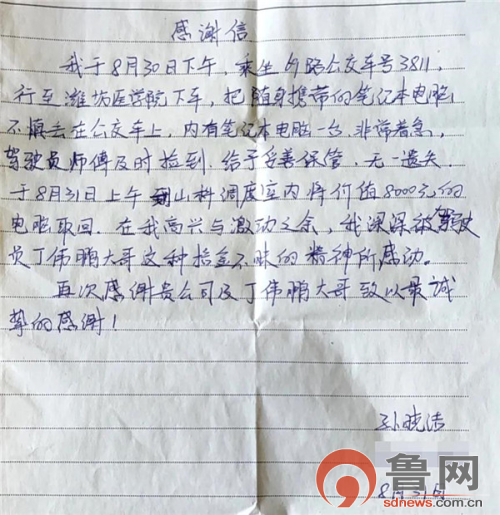 感谢信
我于8月30日下午，乘坐9路公交车号3811，
行至潍坊医学院下车，把随身携带的笔记本电脑
不慎丢在公交车上，内有笔记本电脑一台，非常着急，
驾驶员师傅及时捡到，给予妥善保管，无一遗失
于8月31日上午到山科调度室内将价值8000元的
电脑取回，在我高兴与激动之余，我深深被驾驶
员丁伟鹏大哥这种拾金不昧的精神所感动。
再次感谢贵公司及丁伟鹏大哥致以最诚
挚的感谢！
孙晓洁
8月31日
鲁网
sdnews.com.cn